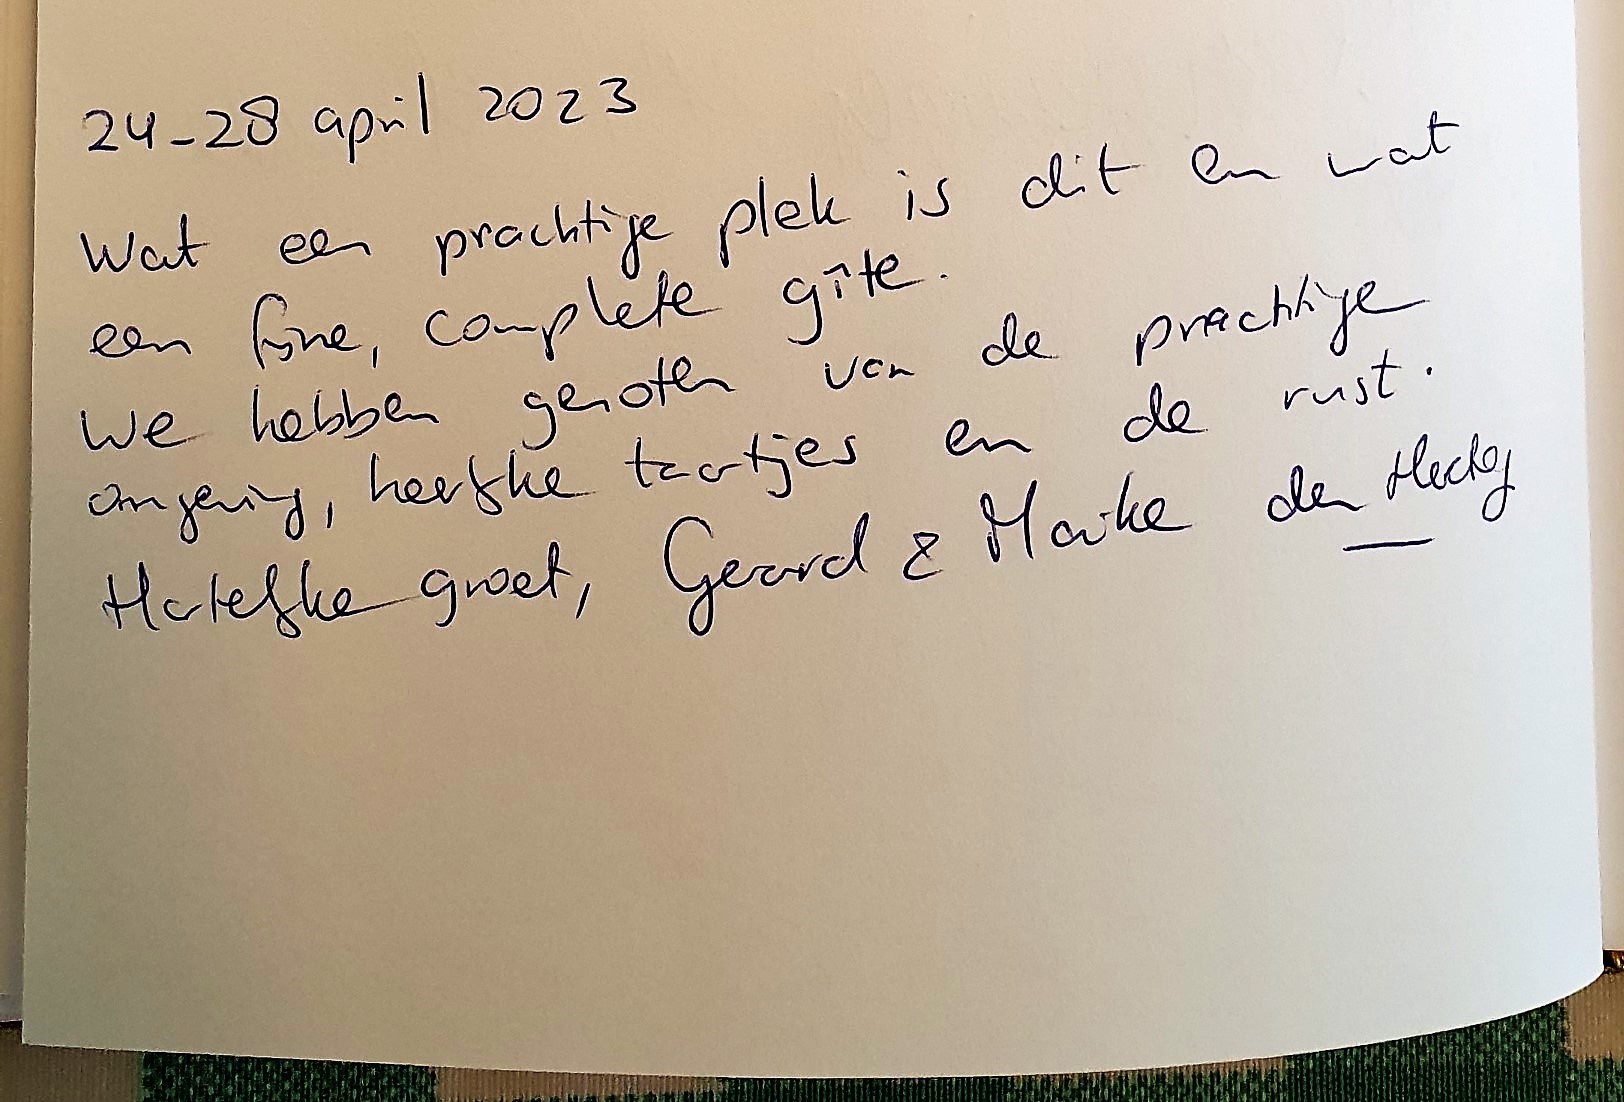 24-28 april 2023
Wat een prachtige plek is dit en wat
een fijne, complete gîte.
We hebben genoten van de prachtige
omgeving, heerlijke taartjes en de rust.
Hartelijke groet, Gerard & Maike den